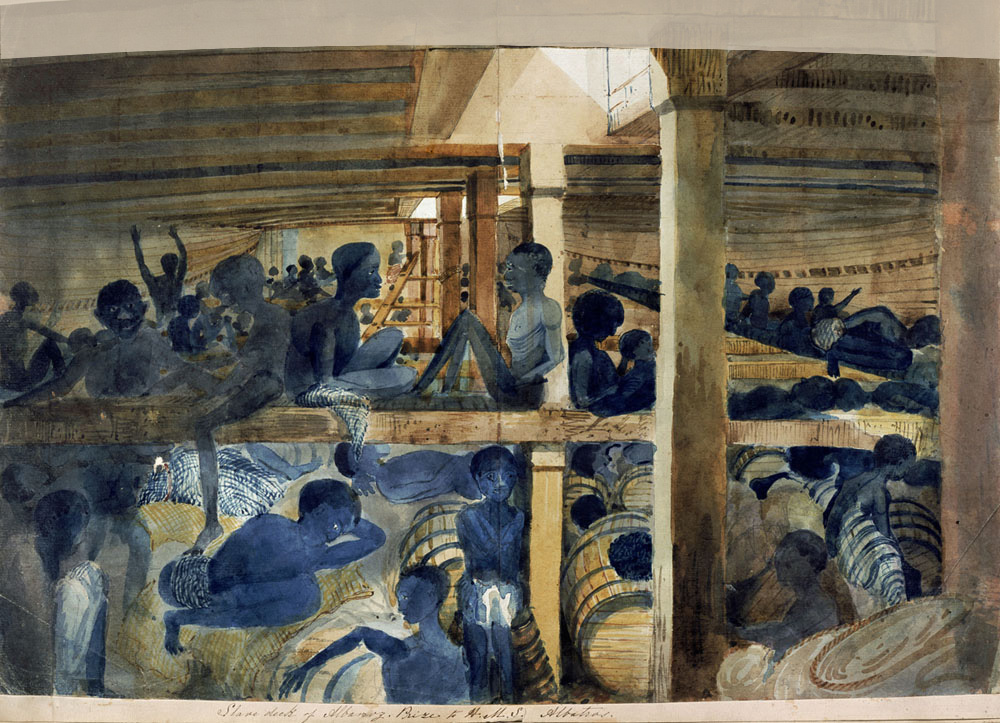 Slave deck of Albanoz. Prize to H.M.S. Albatros.